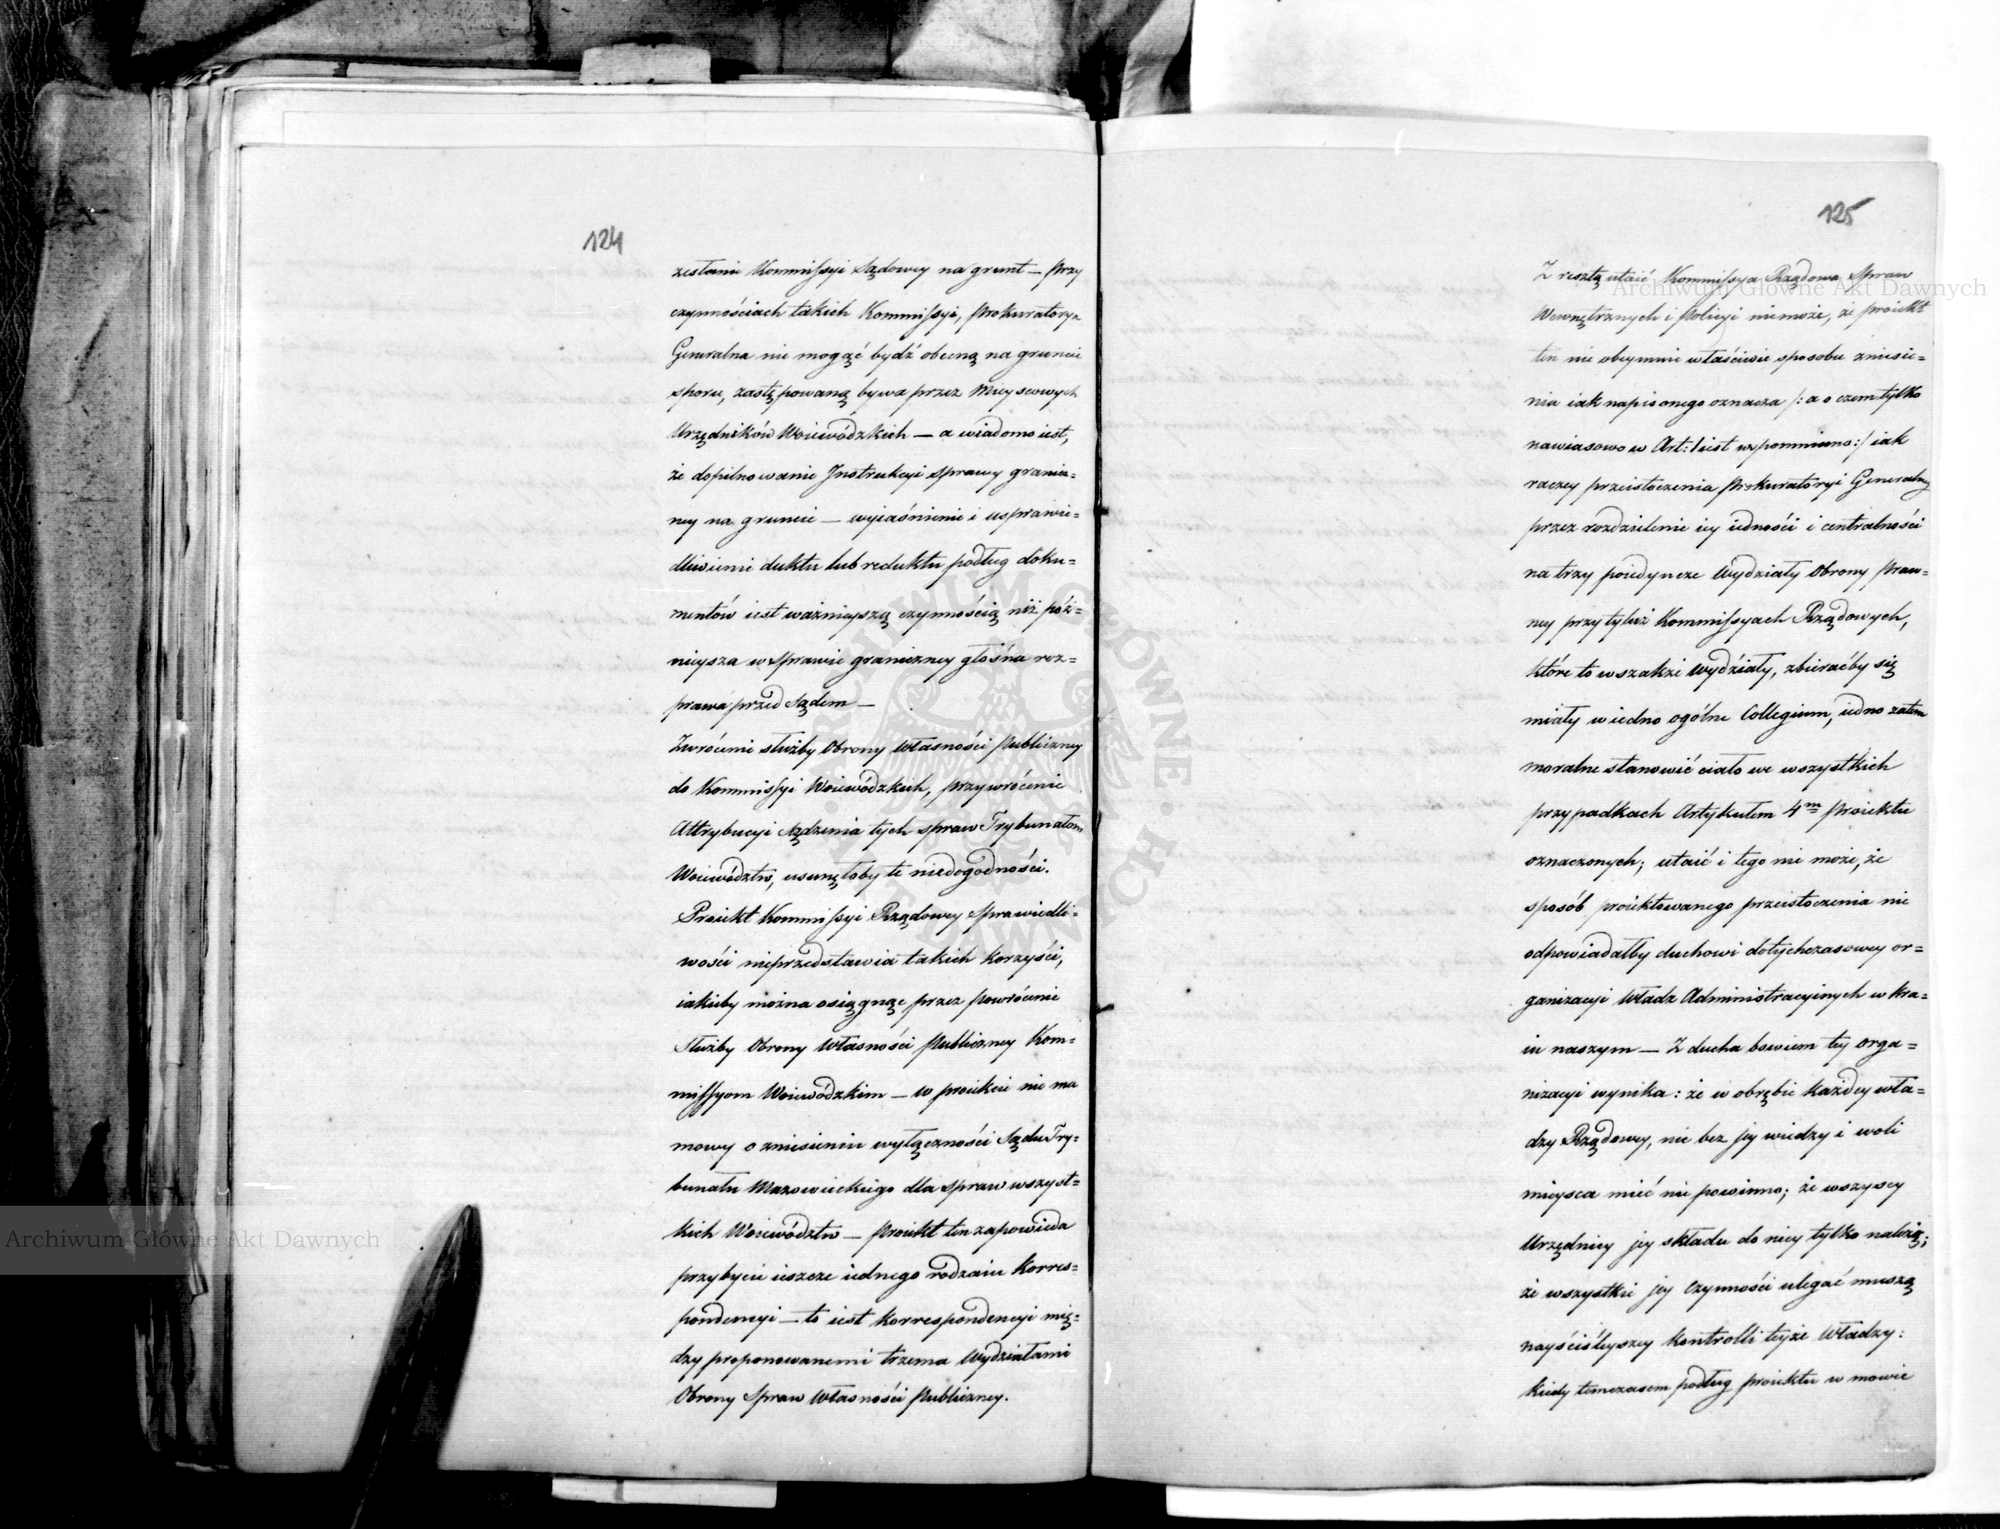 124
zesłanie Kommissyi Sądowey na grunt — Przy
czynnościach takich Kommissyi, Prokuratorya
Generalna nie mogąc bydź obecną na gruncie
sporu, zastępowaną bywa przez Mieyscowych
Urzędników Woiewódzkich — a wiadomo iest,
że dopilnowanie Instrukcyi sprawy granicz=
ney na gruncie — wyiaśnienie i usprawie=
dliwienie duktu lub reduktu podług doku=
mentów iest ważnieyszą czynnością niż póź=
nieysza w Sprawie graniczney głośna roz=
prawa przed Sądem —
Zwrócenie służby Obrony Własności Publiczney
do Kommissyi Woiewódzkich, przywrócenie
Attrybucyi Sądzenia tych spraw Trybunałom
Woiewództw, usunęłoby te niedogodności.
Proiekt Kommissyi Rządowey Sprawiedli=
wości nieprzedstawia takich korzyści,
iakieby można osiągnąć przez powrócenie
Służby Obrony Własności Publiczney Kom=
missyom Woiewódzkim — w proiekcie nie ma
mowy o zniesieniu wyłączności Sądu Try=
bunału Mazowieckiego dla spraw wszyst=
kich Woiewództw — Proiekt ten zapowiada
przybycie ieszcze iednego rodzaiu Korres=
pondencyi — to iest Korrespondencyi mię=
dzy proponowanemi trzema Wydziałami
Obrony Spraw Własności Publiczney.
125
Z resztą utaić Kommissya Rządowa Spraw
Wewnętrznych i Policyi niemoże, że proiekt
ten nie obeymuie właściwie sposobu zniesie=
nia iak napisonego oznacza /: a o czem tylko
nawiasowo w Art: 1 iest wspomniano :/ iak
raczey przeistoczenia Prokuratoryi Generalney
przez rozdzielenie iey iedności i centralności
na trzy poiedyncze Wydziały Obrony Praw=
ney przy tyluż Kommissyach Rządowych,
które to wszakże Wydziały, zbieraćby się
miały w iedno ogólne Collegium, iedno zatem
moralne stanowić ciało we wszystkich
przypadkach Artykułem 4m Proiektu
oznaczonych; utaić i tego nie może, że
sposób proiektowanego przeistoczenia nie
odpowiadałby duchowi dotychczasowey or=
ganizacyi Władz Administracyinych w kra=
iu naszym — Z ducha bowiem tey orga=
nizacyi wynika: że w obrębie każdey wła=
dzy Rządowey, nic bez jey wiedzy i woli
mieysca mieć nie powinno; że wszyscy
Urzędnicy jey składu do niey tylko należą;
że wszystkie jey Czynności ulegać muszą
nayściśleyszey kontrolli teyże Władzy:
kiedy tymczasem podług proiektu w mowie
Archiwum Główne Akt Dawnych
Archiwum Główne Akt Dawnych